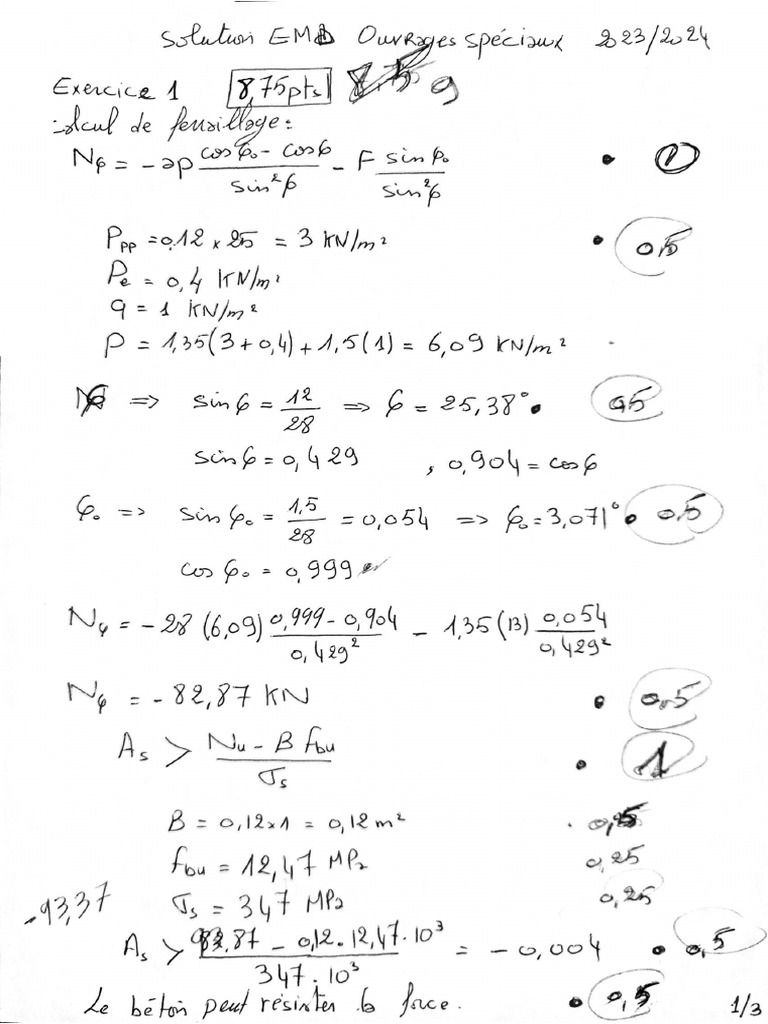 Solution EMD Ouvrages spéciaux 2023/2024
Exercice 1 8,75pts 9
calcul de ferraillage:
Nφ = -ap (cos φ₀ - cos φ)/(sin² φ) - F (sin φ₀)/(sin² φ) • 1
Ppp = 0,12 × 25 = 3 KN/m² • 0,5
Pe = 0,4 KN/m²
q = 1 KN/m²
P = 1,35(3+0,4)+1,5(1) = 6,09 KN/m²
=> sin φ = 12/28 => φ = 25,38° • 0,5
sin φ = 0,429 , 0,904 = cos φ
φ₀ => sin φ₀ = 1,5/28 = 0,054 => φ₀ = 3,071° • 0,5
cos φ₀ = 0,999
Nφ = -28 (6,09) (0,999 - 0,904)/(0,429²) - 1,35(13) (0,054)/(0,429²)
Nφ = -82,87 KN • 0,5
As > (Nu - B fbu)/(σs) • 1
B = 0,12×1 = 0,12 m² 0,25
fbu = 12,47 MPa 0,25
σs = 347 MPa 0,25
-93,37
As > (82,87 - 0,12 · 12,47 · 10³)/(347 · 10³) = - 0,004 • 0,5
Le béton peut résister la force. • 0,5
1/3